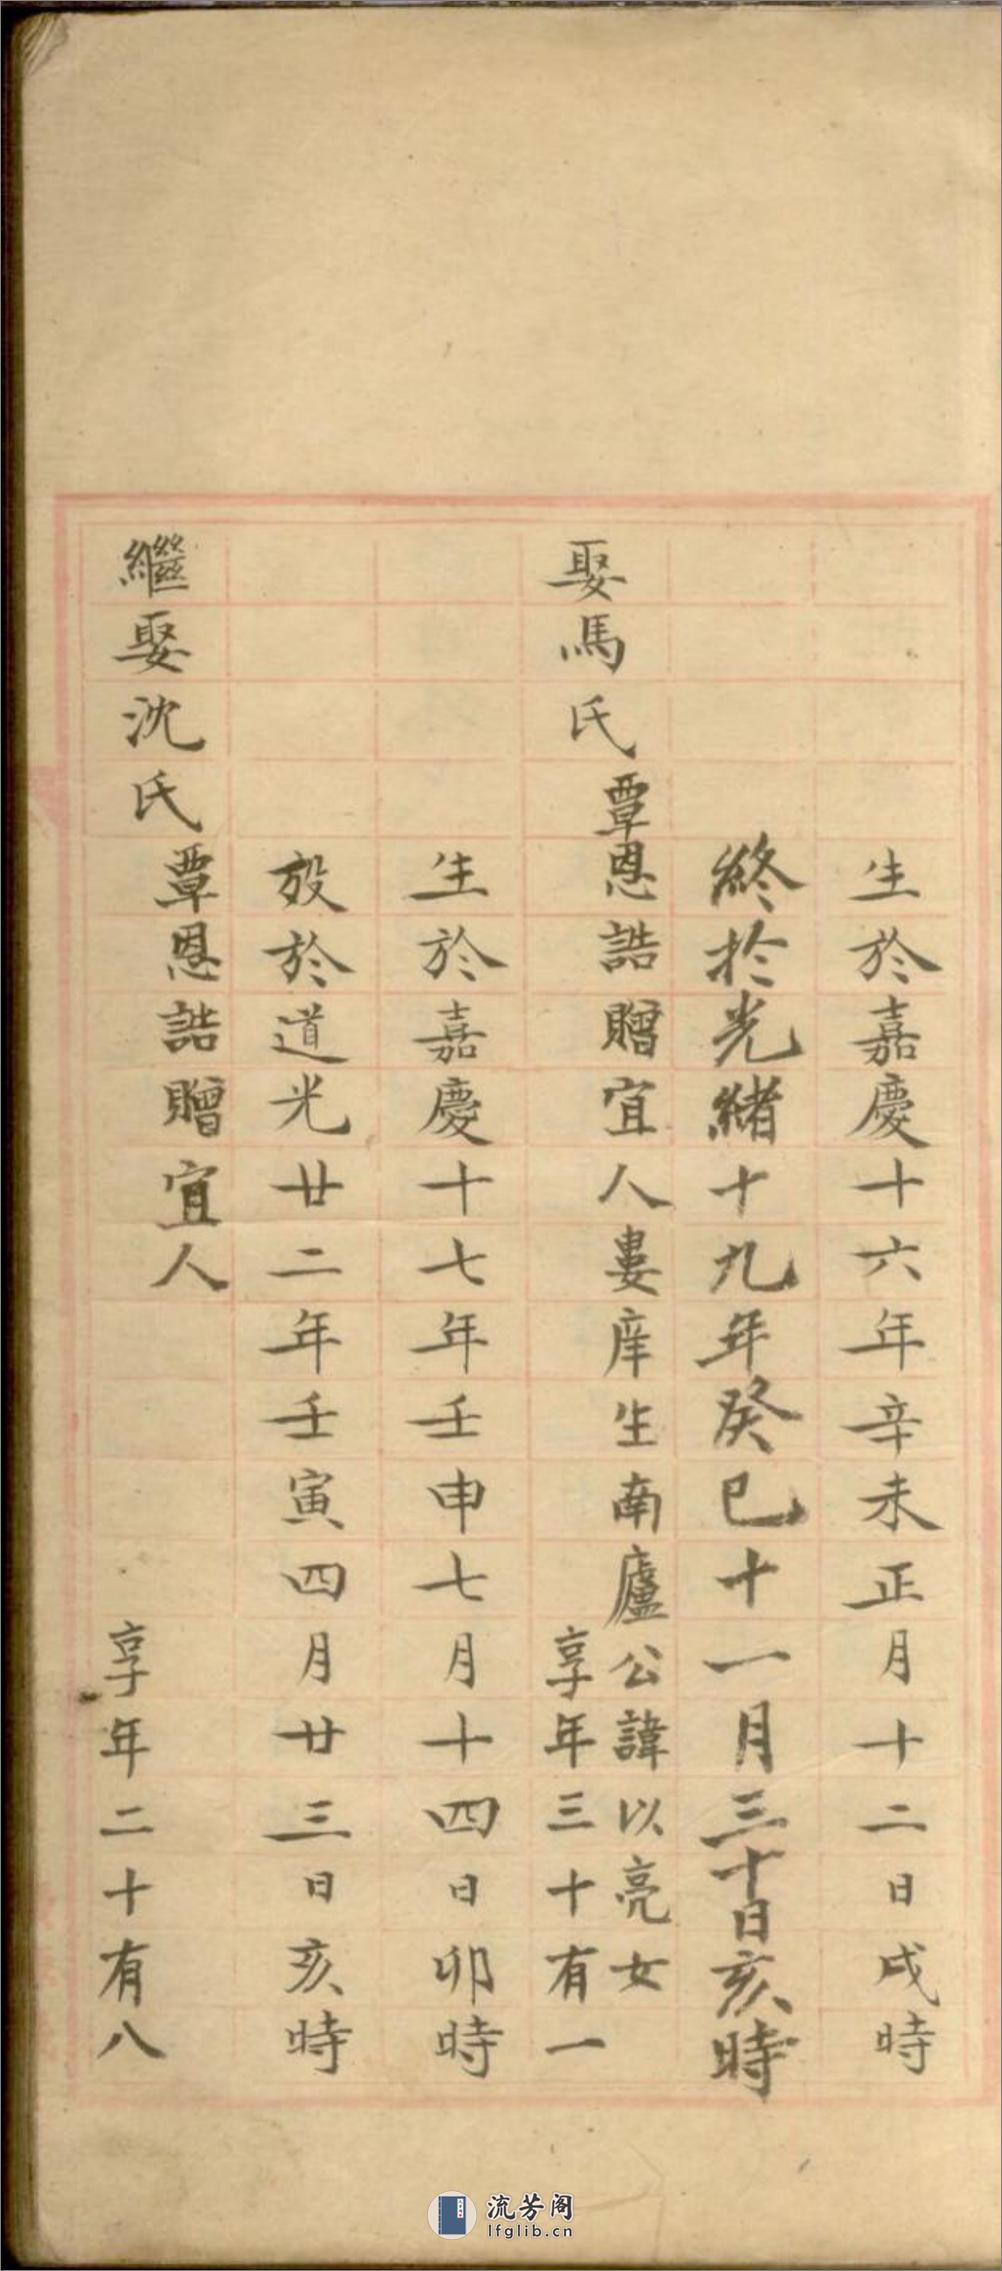 生於嘉慶十六年辛未正月十二日戌時
終於光緒十九年癸巳十一月三十日亥時
娶馬氏覃恩誥贈宜人婁庠生南廬公諱以亮女
享年三十有一
生於嘉慶十七年壬申七月十四日卯時
歿於道光廿二年壬寅四月廿三日亥時
繼娶沈氏覃恩誥贈宜人
享年二十有八
流芳阁
lfglib.cn